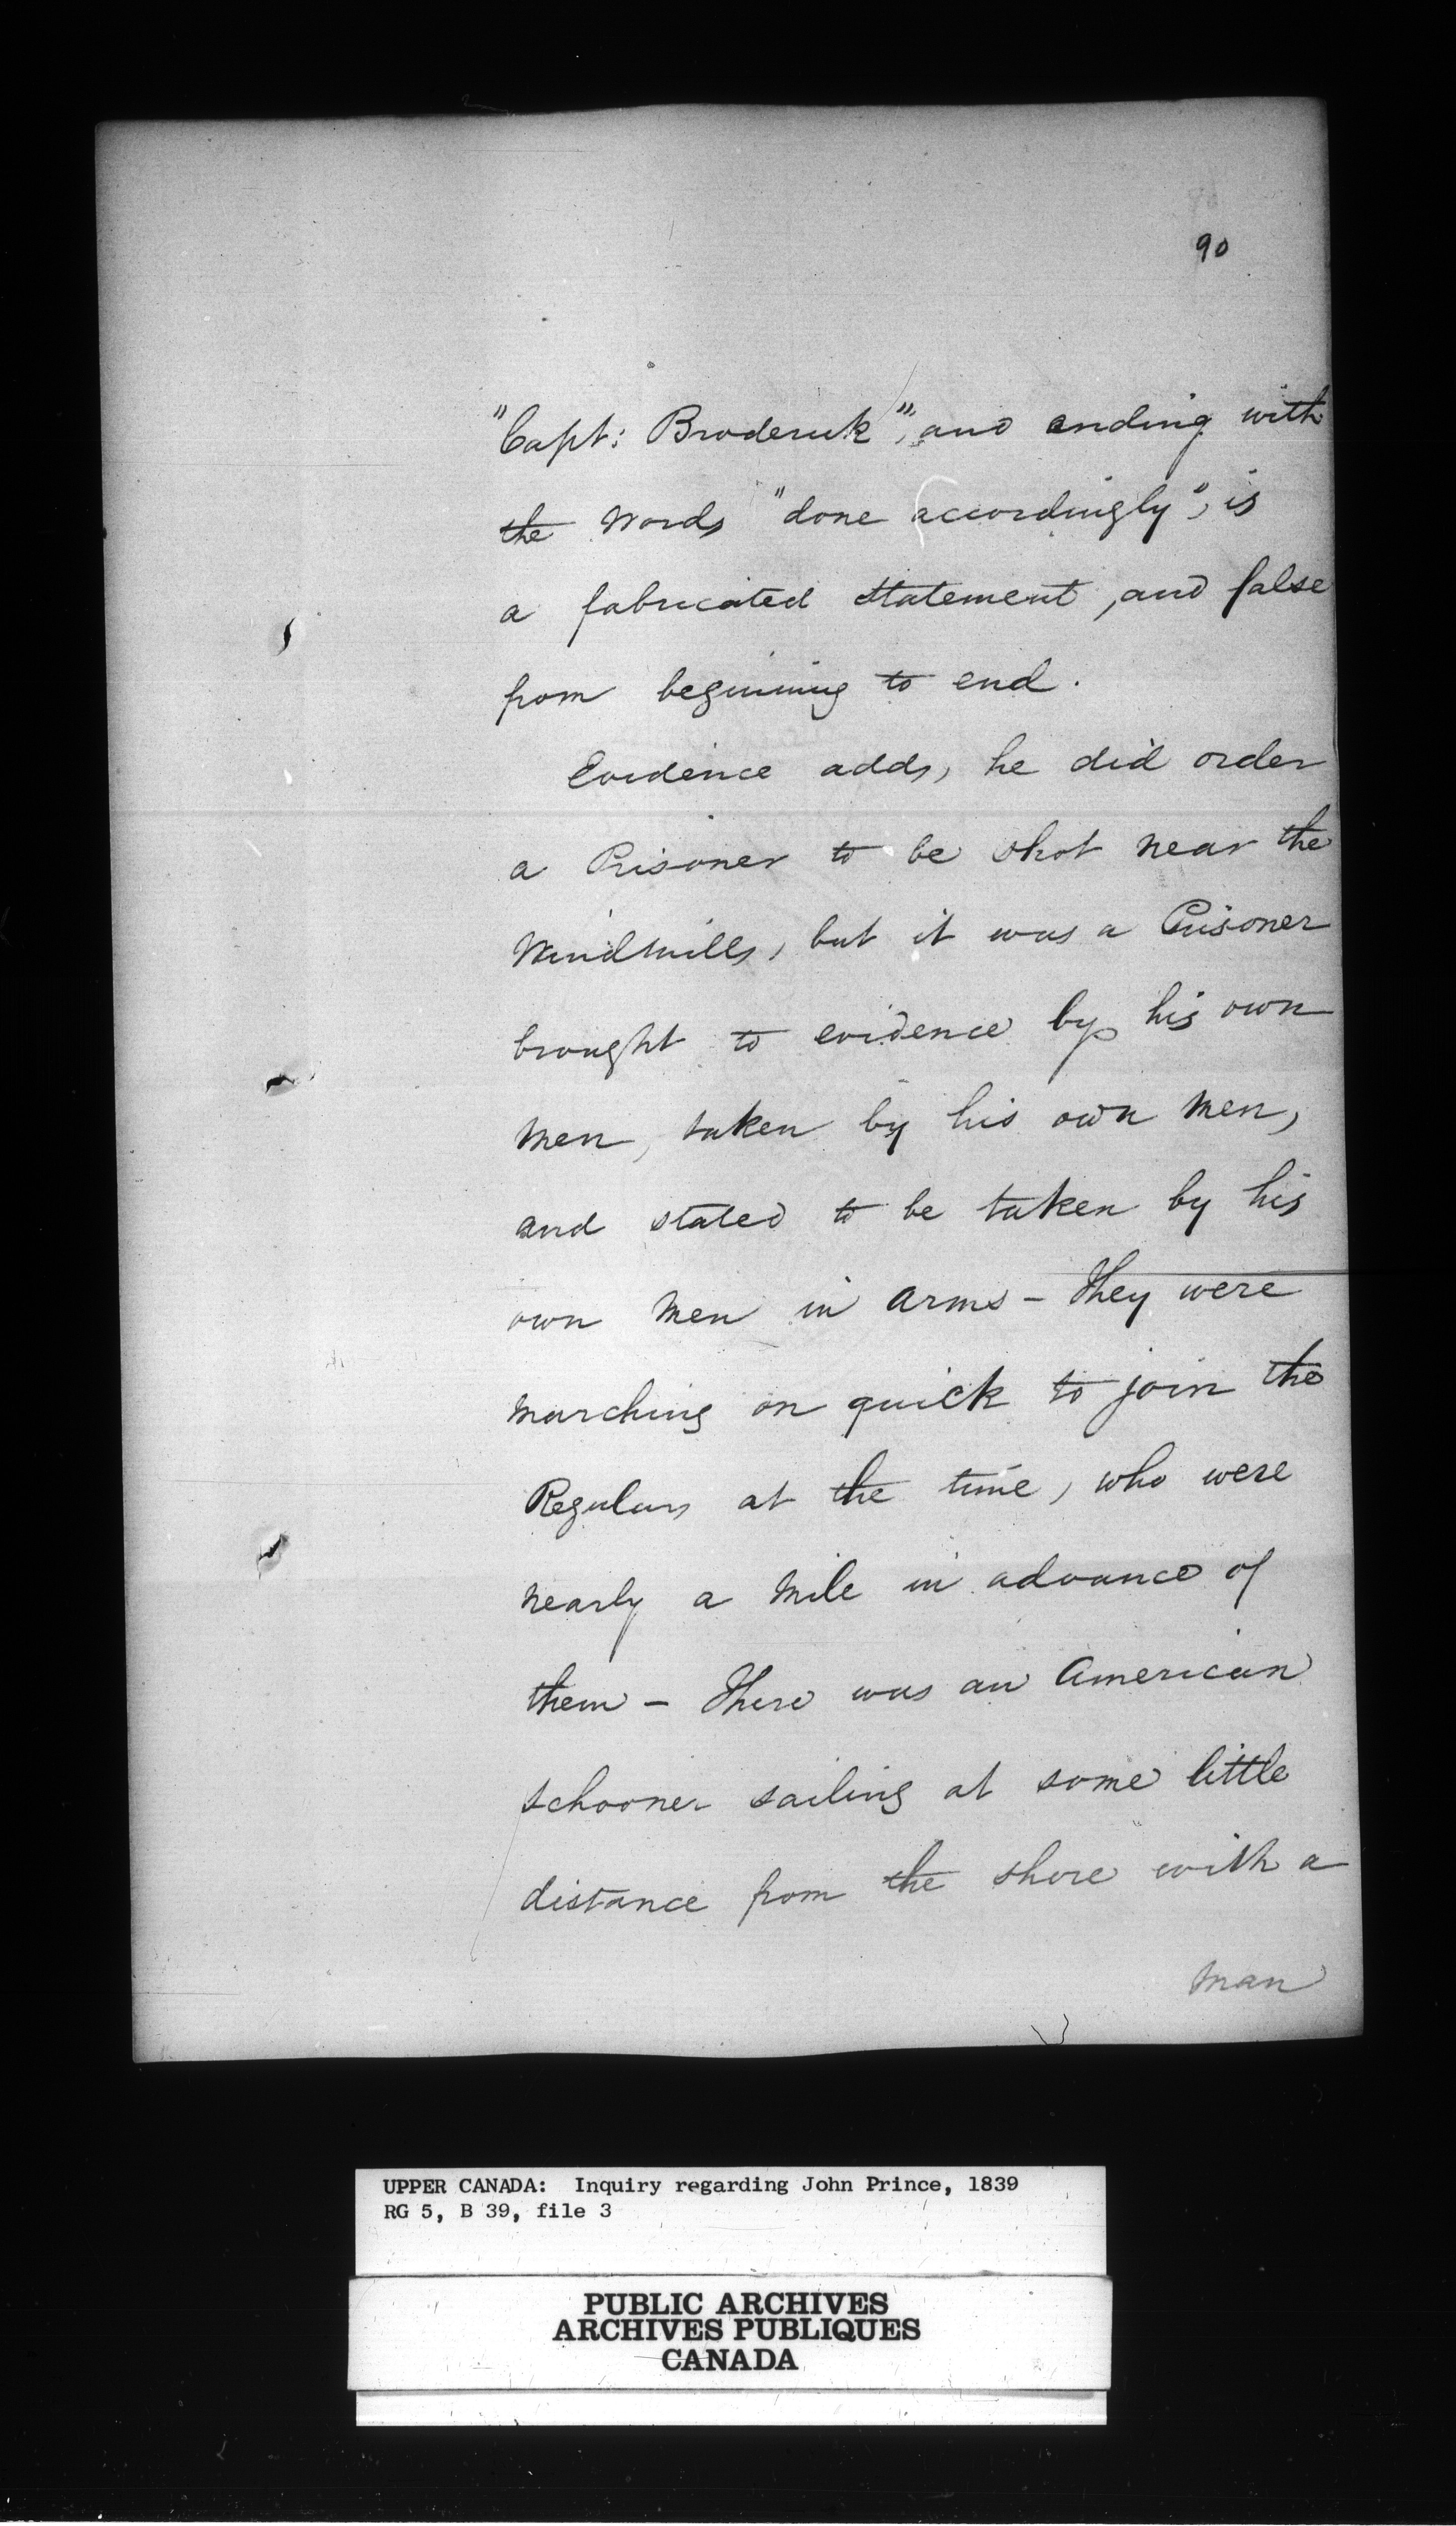 90
"Capt: Broderick", and ending with
the words "done accordingly", is
a fabricated statement, and false
from beginning to end.
Evidence adds, he did order
a Prisoner to be shot near the
Windmills, but it was a Prisoner
brought to evidence by his own
men, taken by his own men,
and stated to be taken by his
own men in arms - They were
marching on quick to join the
Regulars at the time, who were
nearly a mile in advance of
them - There was an American
schooner sailing at some little
distance from the shore with a
man
UPPER CANADA: Inquiry regarding John Prince, 1839
RG 5, B 39, file 3
PUBLIC ARCHIVES
ARCHIVES PUBLIQUES
CANADA